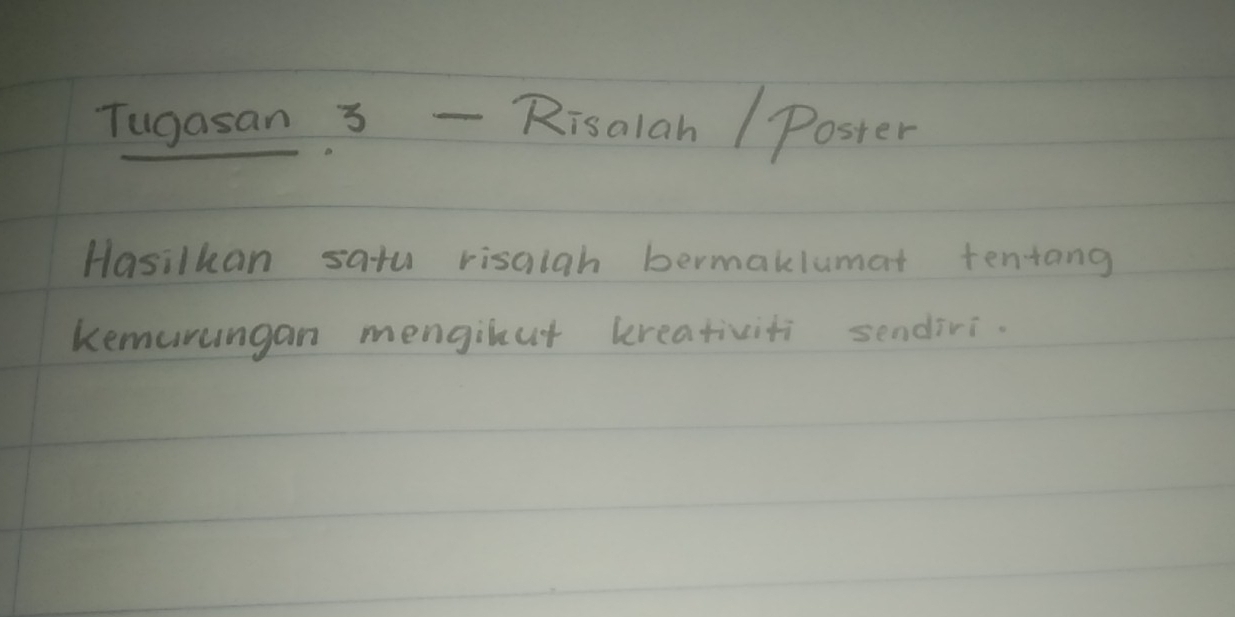 Tugasan 3 - Risalah / Poster
Hasilkan satu risalah bermaklumat tentang
kemurungan mengikut kreativiti sendiri.